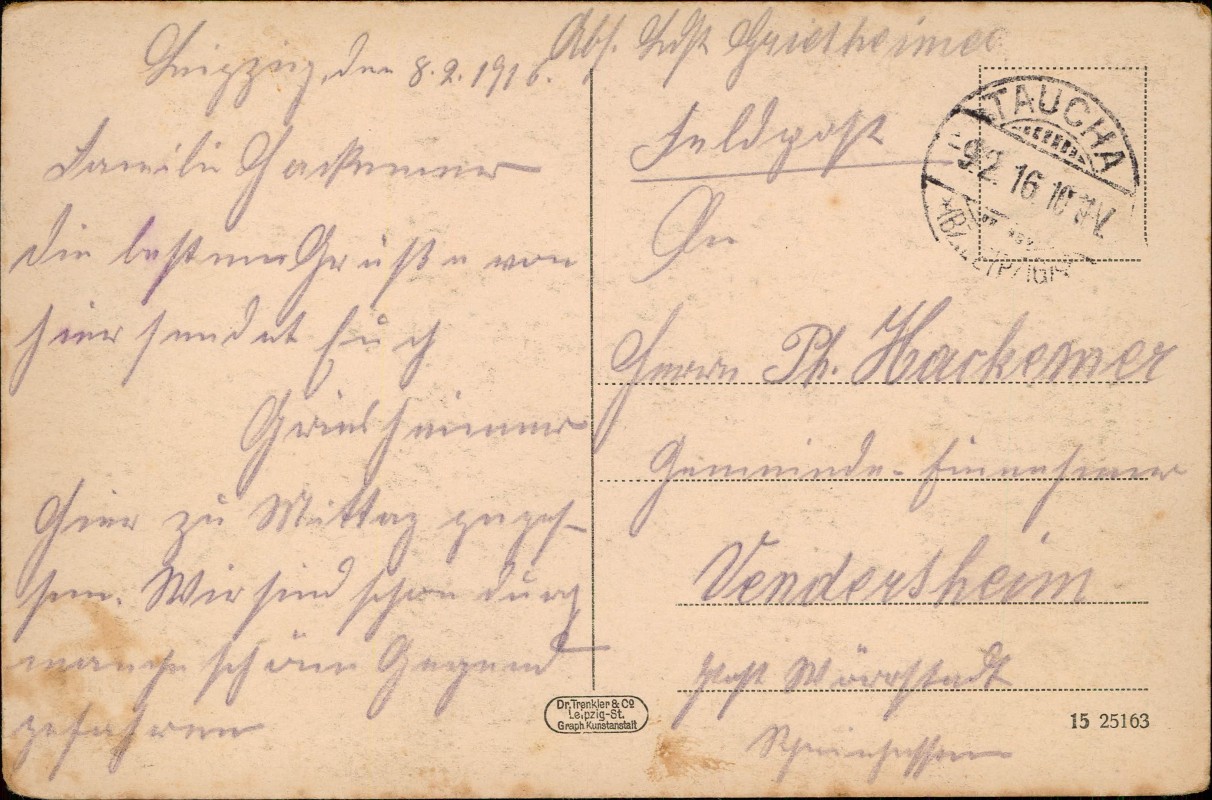 Leipzig, den 8.2.1916.
Familie Hackemer
die besten Grüße von
hier sendet Euch
Griesheimer
Hier zu Mittag gegess-
sen. Wir sind schon durch
manche schöne Gegend
gefahren
Abs. Ldst Griesheimer
Feldpost
An
Herrn Ph. Hackemer
Gemeinde-Einnehmer
Vendersheim
Post Wörrstadt
Rheinhessen
TAUCHA
9.2.16.10
(BZ. LEIPZIG)
Dr. Trenkler & Co
Leipzig-St.
Graph. Kunstanstalt
15 25163